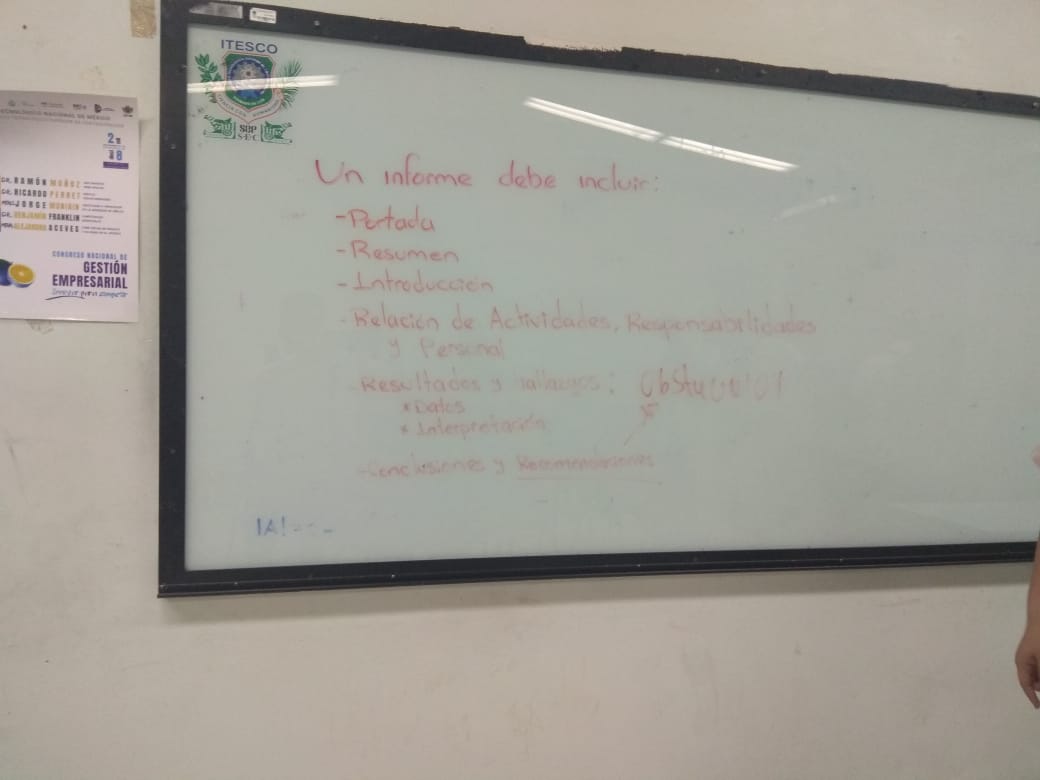 TECNOLÓGICO NACIONAL DE MÉXICO
18
RAMÓN MUÑOZ
RICARDO PERRET
JORGE
BENJAMÍN FRANKLIN
ALEJANDRO ACEVES
CONGRESO NACIONAL DE
GESTIÓN
EMPRESARIAL
Innovar para competir
ITESCO
SEP
S·E·C
Un informe debe incluir:
-Portada
-Resumen
-Introducción
-Relación de Actividades, Responsabilidades
y Personal
-Resultados y Hallazgos:
*Datos
*Interpretación
-Conclusiones y Recomendaciones